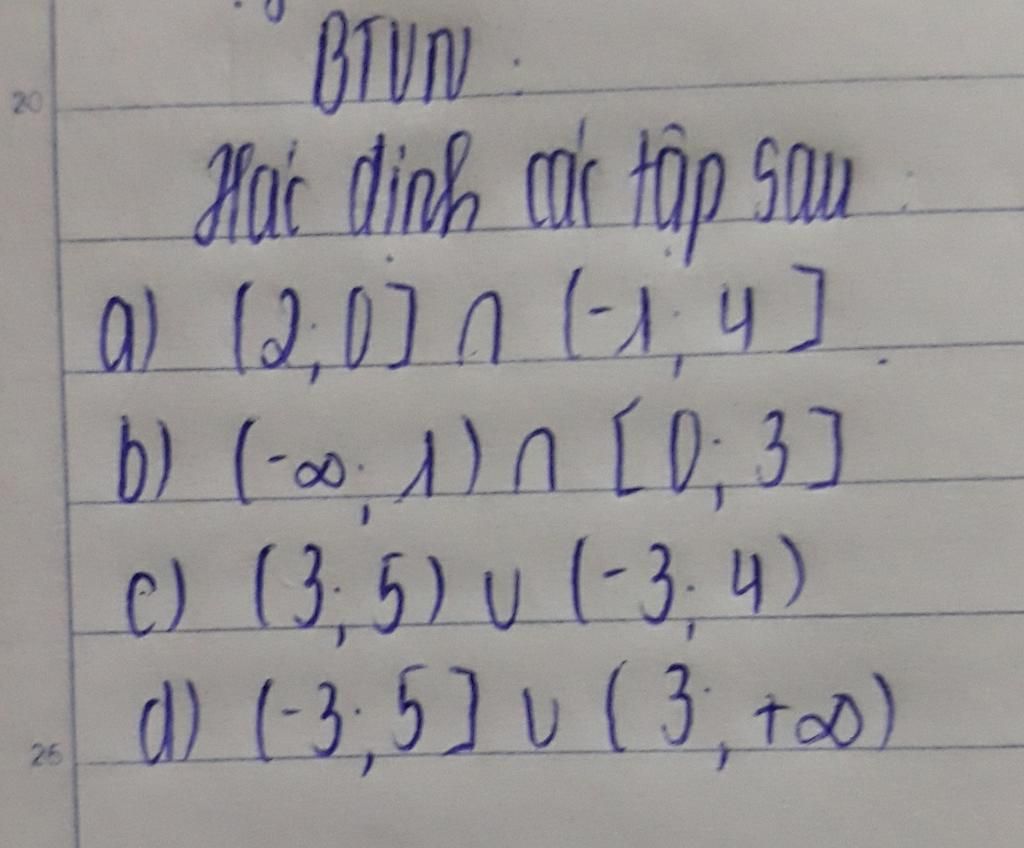 20
BTVN :
Xác định các tập sau :
a) (2; 0] ∩ (-1; 4]
b) (-∞; 1) ∩ [0; 3]
c) (3; 5) ∪ (-3; 4)
d) (-3; 5] ∪ (3; +∞)
25